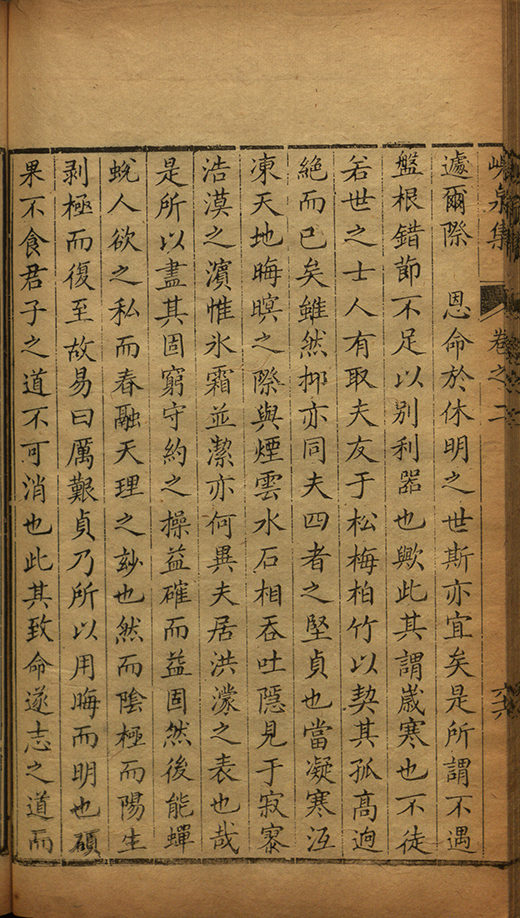 峴泉集 卷之二 六六
遽爾際 恩命於休明之世斯亦宜矣是所謂不遇
盤根錯節不足以別利器也歟此其謂歲寒也不徒
若世之士人有取夫友于松梅柏竹以契其孤高迥
絕而已矣雖然抑亦同夫四者之堅貞也當凝寒沍
凍天地晦暝之際與煙雲水石相吞吐隱見于寂寥
浩漠之濱惟氷霜並潔亦何異夫居洪濛之表也哉
是所以盡其固窮守約之操益確而益固然後能蟬
蛻人欲之私而春融天理之玅也然而陰極而陽生
剥極而復至故易曰厲艱貞乃所以用晦而明也碩
果不食君子之道不可消也此其致命遂志之道而